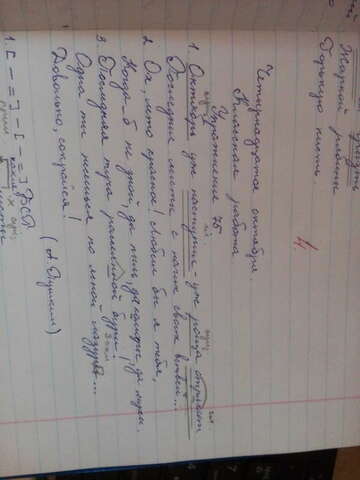 Жаркой рябины
Горькую кисть.
4
Четырнадцатое октября.
Классная работа
Упражнение 75.
1. Октябрь уж наступил - уж роща отряхает
Последние листы с нагих своих ветвей...
2. Ох, лето красное! любил бы я тебя,
Когда б не зной, да пыль, да комары, да мухи.
3. Последняя туча рассеянной бури!
Одна ты несешься по ясной лазури...
Довольно, сокройся! (А. Пушкин)
1. [ - = ] - [ - = ]